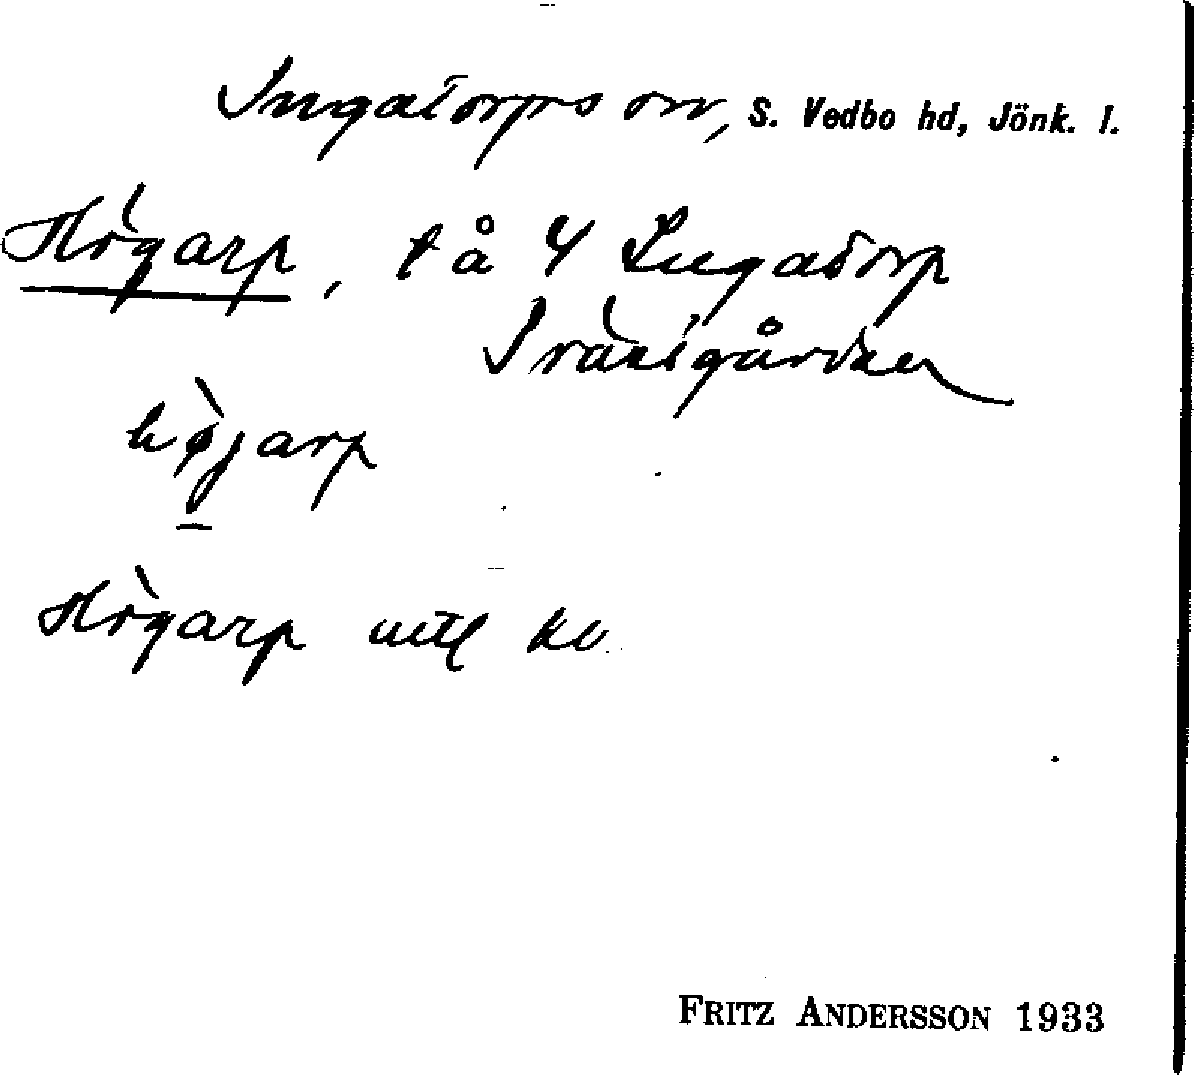 Ingatorps sn, S. Vedbo hd, Jönk. l.
Högarp, t å 4 Ingatorp
Prästgården
högarp
Högarp utl
FRITZ ANDERSSON 1933